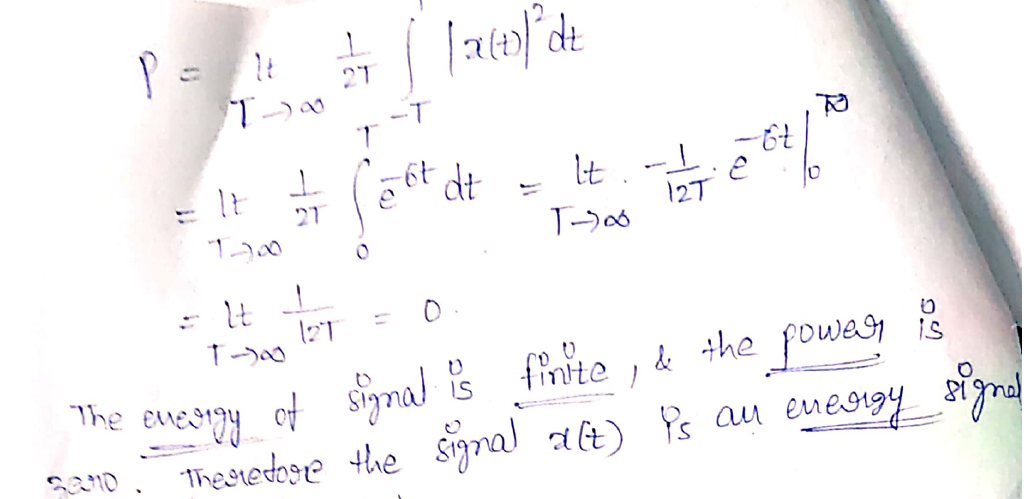 P = lt T→∞ 1/2T ∫_{-T}^{T} |x(t)|² dt
= lt T→∞ 1/2T ∫_0^T e^{-6t} dt = lt T→∞ -1/12T . e^{-6t} |_0
= lt T→∞ 1/12T = 0.
The energy of signal is finite, & the power is
zero. Therefore the signal x(t) is an energy signal